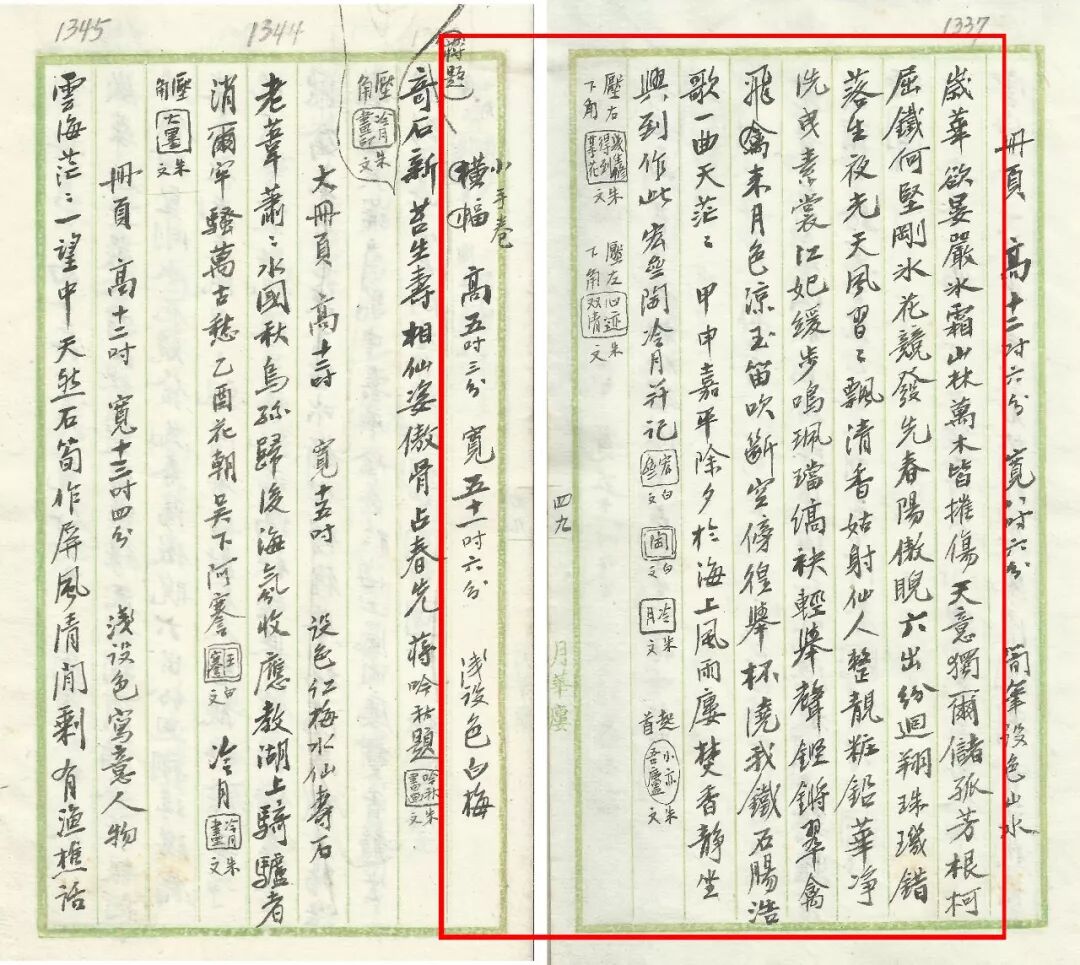 1337
冊頁 高十二吋六分 寬八吋六分 簡筆設色山水
歲華欲晏嚴冰霜山林萬木皆摧傷天意獨爾儲孤芳根柯
屈鐵何堅剛冰花競發先春陽傲睨六出紛迴翔珠璣錯
落生夜光天風習〻飄清香姑射仙人整靚粧鉛華凈
洗曳素裳江妃緩步鳴珮璫縞袂輕舉聲鏗鏘翠禽
飛來月色涼玉笛吹斷空傍徨舉杯澆我鐵石腸浩
歌一曲天茫〻 甲申嘉平除夕於海上風雨廔焚香靜坐
興到作此宏斋陶冷月并记 白文 陶 白文 冷月 朱文 起首 小亦吾廬 朱文
壓左下角 幾生修得到某花 朱文 壓左下角 心迹双清 朱文
四九
月華廔
1344
1345
蔣題
小手卷
橫幅 高五吋三分 寬五十一吋六分 浅设色白梅
奇石新苔生壽相仙姿傲骨占春先 蒋吟秋題 吟秋書画 朱文
壓角 冷月畫印 朱文
大冊頁 高十吋 寬十五吋 设色红梅水仙壽石
老葦蕭〻水國秋烏孫歸後海氛收應教湖上騎驢者
消爾牢騷萬古愁乙酉花朝吴下阿謇 王謇 白文 冷月 冷月畫 朱文
壓角 大墨 朱文
冊頁 高十二吋 寬十三吋四分 浅设色寫意人物
雲海茫〻一望中天然石筍作屏風清閒剩有漁樵話